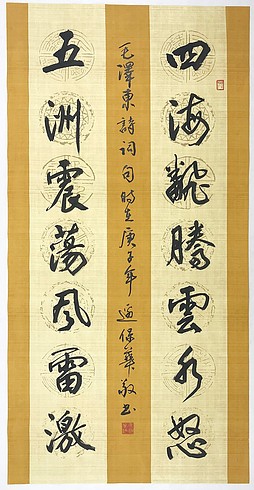 四海翻騰雲水怒
五洲震蕩風雷激
毛澤東詩詞句時在庚子年 保華敬书